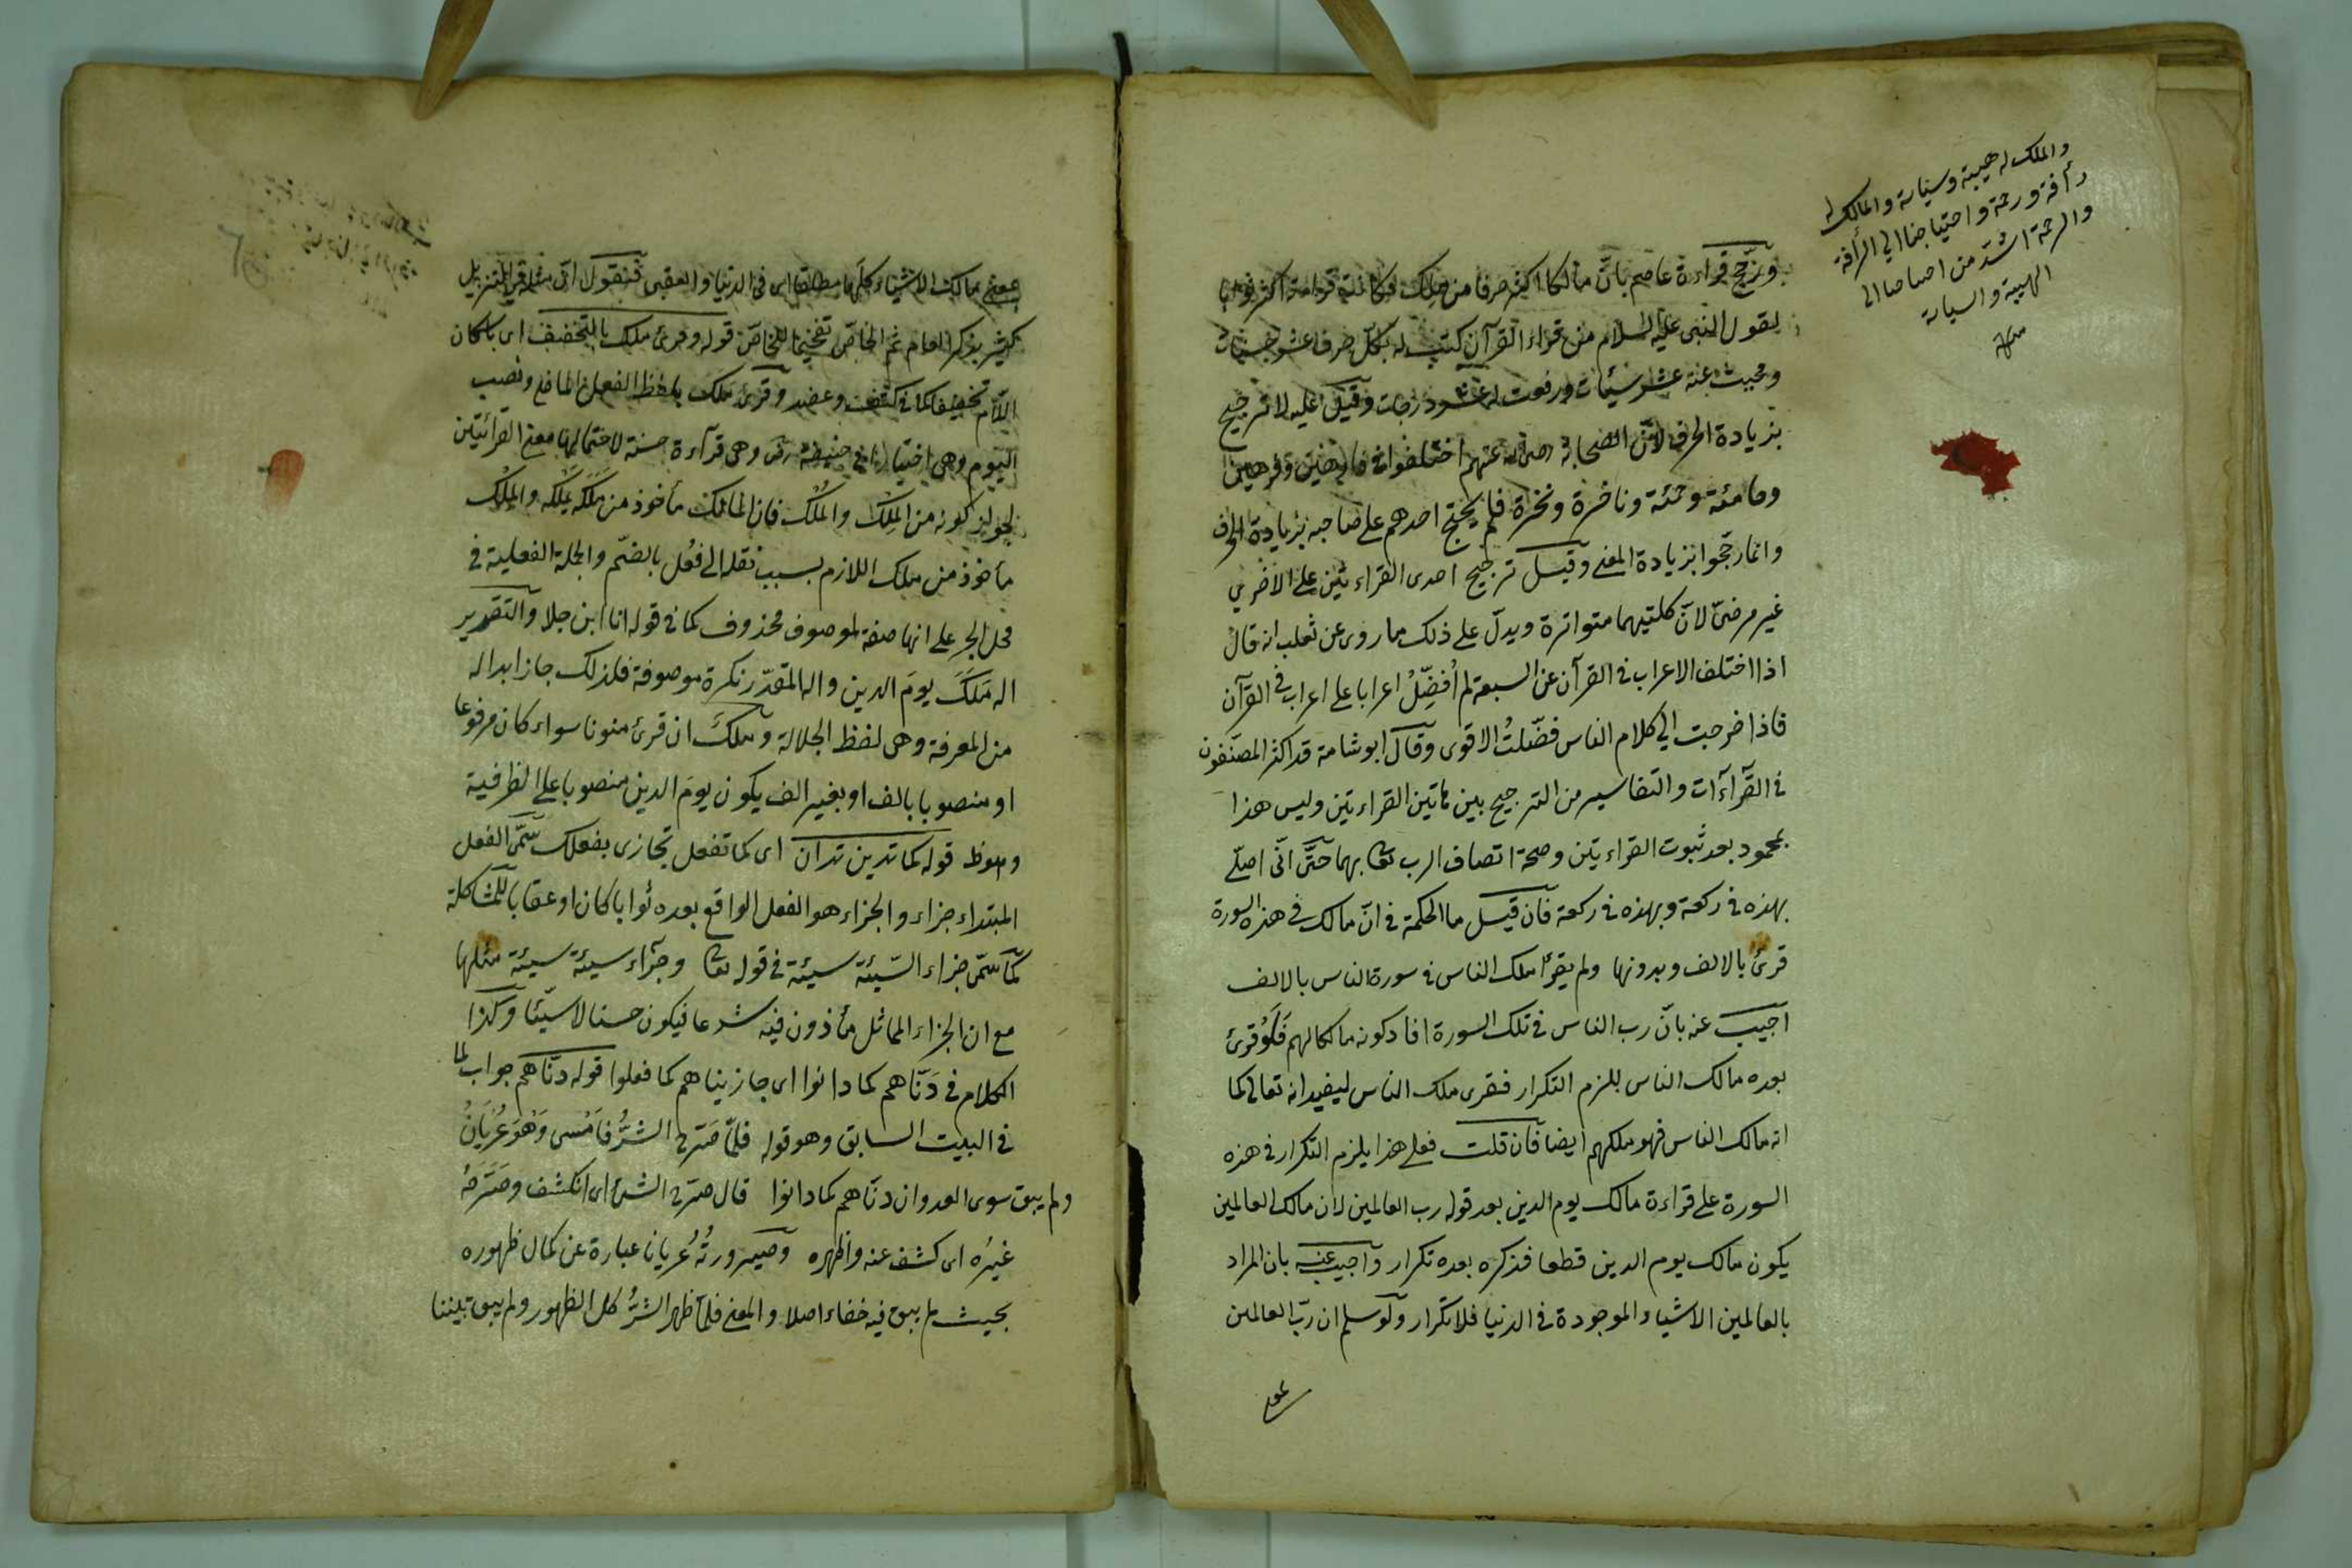 والملك له هيبة وسياسة والمالك له
رأفة ورحمة واحتياجنا الى الرأفة
والرحمة اشد من احتياجنا الى
الهيبة والسياسة
منه
ورجح قراءة عاصم بان مالكا اكثر حرفا من ملك فكانت قراءته اكثر ثوابا
لقول النبى عليه السلام من قراء القرآن كتب له بكل حرف عشر حسنات
ومحيت عنه عشر سيئات ورفعت له عشر درجات وقيل عليه لا ترجيح
بزيادة الحرف لان الصحابة رضى الله عنهم اختلفوا فى فارهين وفرهين
وحامئة وحمئة وناخرة ونخرة فلم يحتج احدهم على صاحبه بزيادة الحرف
وانما رجحوا بزيادة المعنى وقيل ترجيح احدى القراءتين على الاخرى
غير مرضىّ لانّ كلتيهما متواترة ويدلّ على ذلك ما روى عن ثعلب انه قال
اذا اختلف الاعراب فى القرآن عن السبعة لم اُفضّلُ اعرابا على اعراب فى القرآن
فاذا خرجت الى كلام الناس فضّلتُ الاقوى وقال ابو شامة قد اكثر المصنّفون
فى القرآآت والتفاسير من الترجيح بين هاتين القراءتين وليس هذا
بمحمود بعد ثبوت القراءتين وصحة اتصاف الرب تعا بهما حتّى انّى اصلّى
بهذه فى ركعة وبهذه فى ركعة فان قيل ما الحكمة فى انّ مالك فى هذه السورة
قرئ بالالف وبدونها ولم يقرأ ملك الناس فى سورة الناس بالالف
اجيب عنه بانّ رب الناس فى تلك السورة افاد كونه مالكا لهم فَلَوْ قرئ
بعده مالك الناس يلزم التكرار فقرى ملك الناس ليفيد انه تعالى كما
انه مالك الناس فهو ملكهم ايضا فان قلت فعلى هذا يلزم التكرار فى هذه
السورة على قراءة مالك يوم الدين بعد قوله رب العالمين لان مالك العالمين
يكون مالك يوم الدين قطعا فذكره بعده تكرار واجيب عنه بان المراد
بالعالمين الاشياء الموجودة فى الدنيا فلا تكرار ولو سلم ان ربّ العالمين
بمعنى
بمعنى مالك الاشياء كلّها مطلقا اى فى الدنيا والعقبى فنقول انّ مثله فى التنزيل
كثير بذكر العام ثم الخاصّ تفخيما للخاصّ قوله وقرئ ملك بالتخفيف اى باسكان
اللام تخفيفا كما فى كتف وعضد وقرئ ملك بلفظ الفعل الماضى ونصب
اليوم وهى اختيار ابى حنيفة رض وهى قرآءة حسنة لاحتمالها معنى القرائتين
لجواز كونه من المِلك والمُلك فان المالك مأخوذ من مَلَكه يملكه والمِلْك
مأخوذ من ملك اللازم بسبب نقله الى فعُل بالضمّ والجملة الفعلية فى
محل الجر على انها صفة لموصوف محذوف كما فى قوله انا ابن جلا والتقدير
اله مَلَكَ يومَ الدين واله المقدّر نكرة موصوفة فلذلك جاز ابداله
من المعرفة وهى لفظ الجلالة وملك ان قرئ منونا سواء كان مرفوعا
او منصوبا بالف او بغير الف يكون يومَ الدين منصوبا على الظرفية
قوله كما تدين تدان اى كما تفعل تجازى بفعلك سمّى الفعل
المبتداء جزاء والجزاء هو الفعل الواقع بعده ثوابا كان او عقابا للمشاكلة
كما سمّى جزاء السّيئة سيئة فى قوله تعا وجزآء سيئة سيئة مثلها
مع ان الجزاء المماثل مأذون فيه شرعا فيكون حسنا لا سيّئا وكذا
الكلام فى دَنّاهم كما دانوا اى جازيناهم كما فعلوا قوله دنّاهم جواب لما
فى البيت السابق وهو قوله فلمّا صَرّح الشّرُّ فاَمْسى وَهْوَ عُرْيَانُ
ولم يبق سوى العدوان دنّاهم كما دانوا قال صرّح الشئ اى انكشف وصَرّحَهُ
غيرُه اى كشف عنه واظهره وصيرورتُهُ عريانا عبارة عن كمال ظهوره
بحيث لم يبق فيه خفاء اصلا والمعنى فلمّا ظهر الشرُّ كل الظهور ولم يبق بيننا